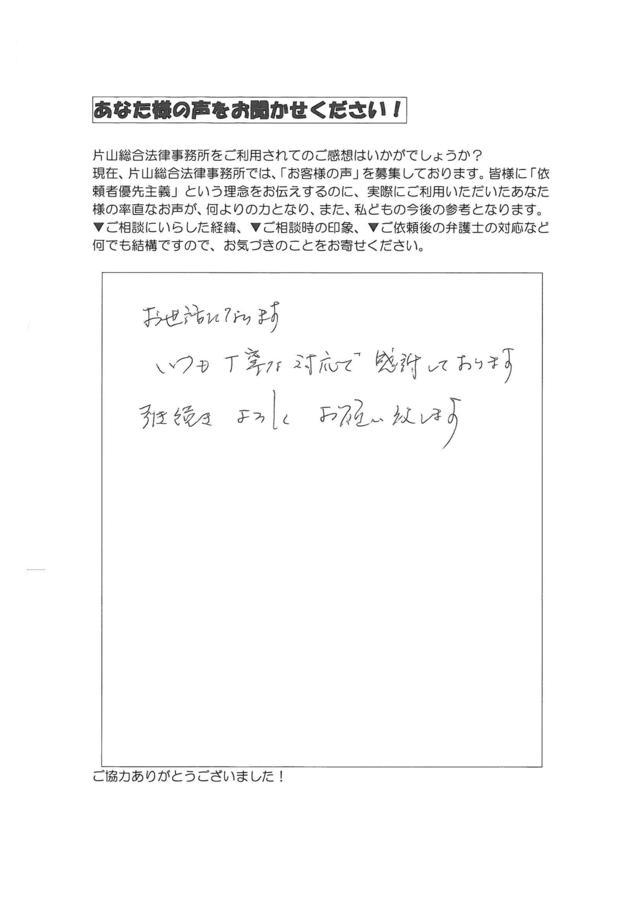 あなた様の声をお聞かせください！
片山総合法律事務所をご利用されてのご感想はいかがでしょうか？
現在、片山総合法律事務所では、「お客様の声」を募集しております。皆様に「依
頼者優先主義」という理念をお伝えするのに、実際にご利用いただいたあなた
様の率直なお声が、何よりの力となり、また、私どもの今後の参考となります。
▼ご相談にいらした経緯、▼ご相談時の印象、▼ご依頼後の弁護士の対応など
何でも結構ですので、お気づきのことをお寄せください。
お世話になります
いつも丁寧な対応で感謝しております
引き続きよろしくお願い致します
ご協力ありがとうございました！